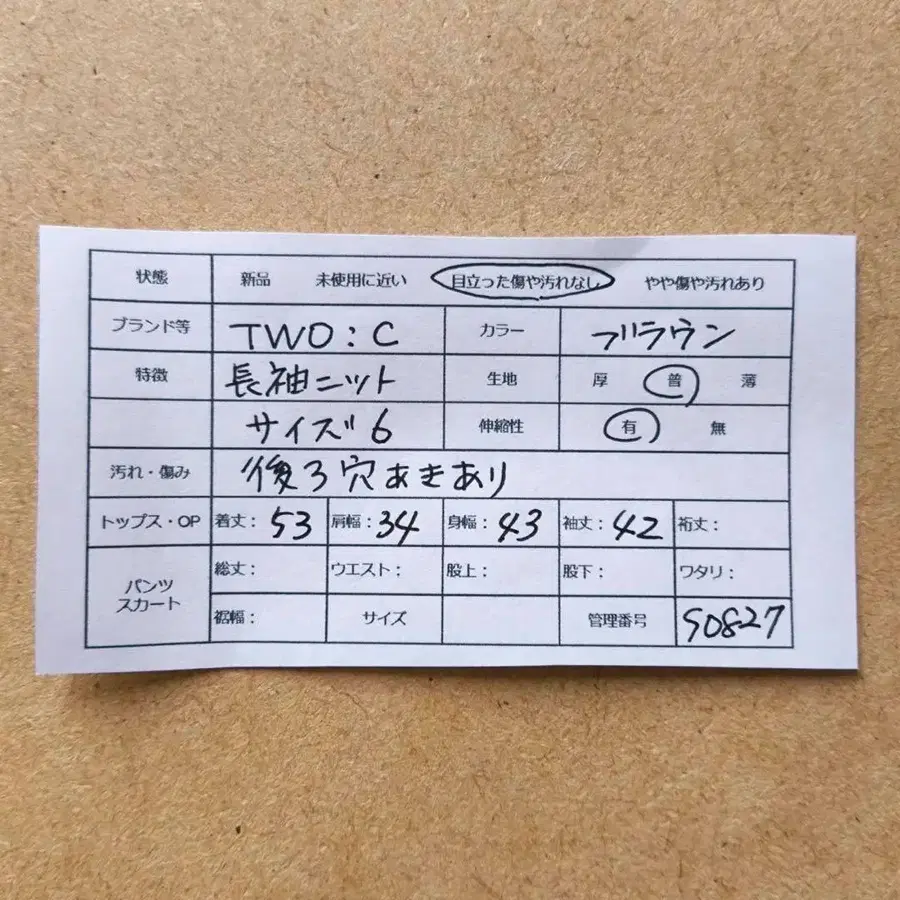 状態 新品 未使用に近い 目立った傷や汚れなし やや傷や汚れあり
ブランド等 TWO:C カラー ブラウン
特徴 長袖ニット 生地 厚 普 薄
サイズ6 伸縮性 有 無
汚れ・傷み 後ろ穴あきあり
トップス・OP 着丈: 53 肩幅: 34 身幅: 43 袖丈: 42 裄丈:
パンツ スカート 総丈: ウエスト: 股上: 股下: ワタリ:
裾幅: サイズ 管理番号 S0827